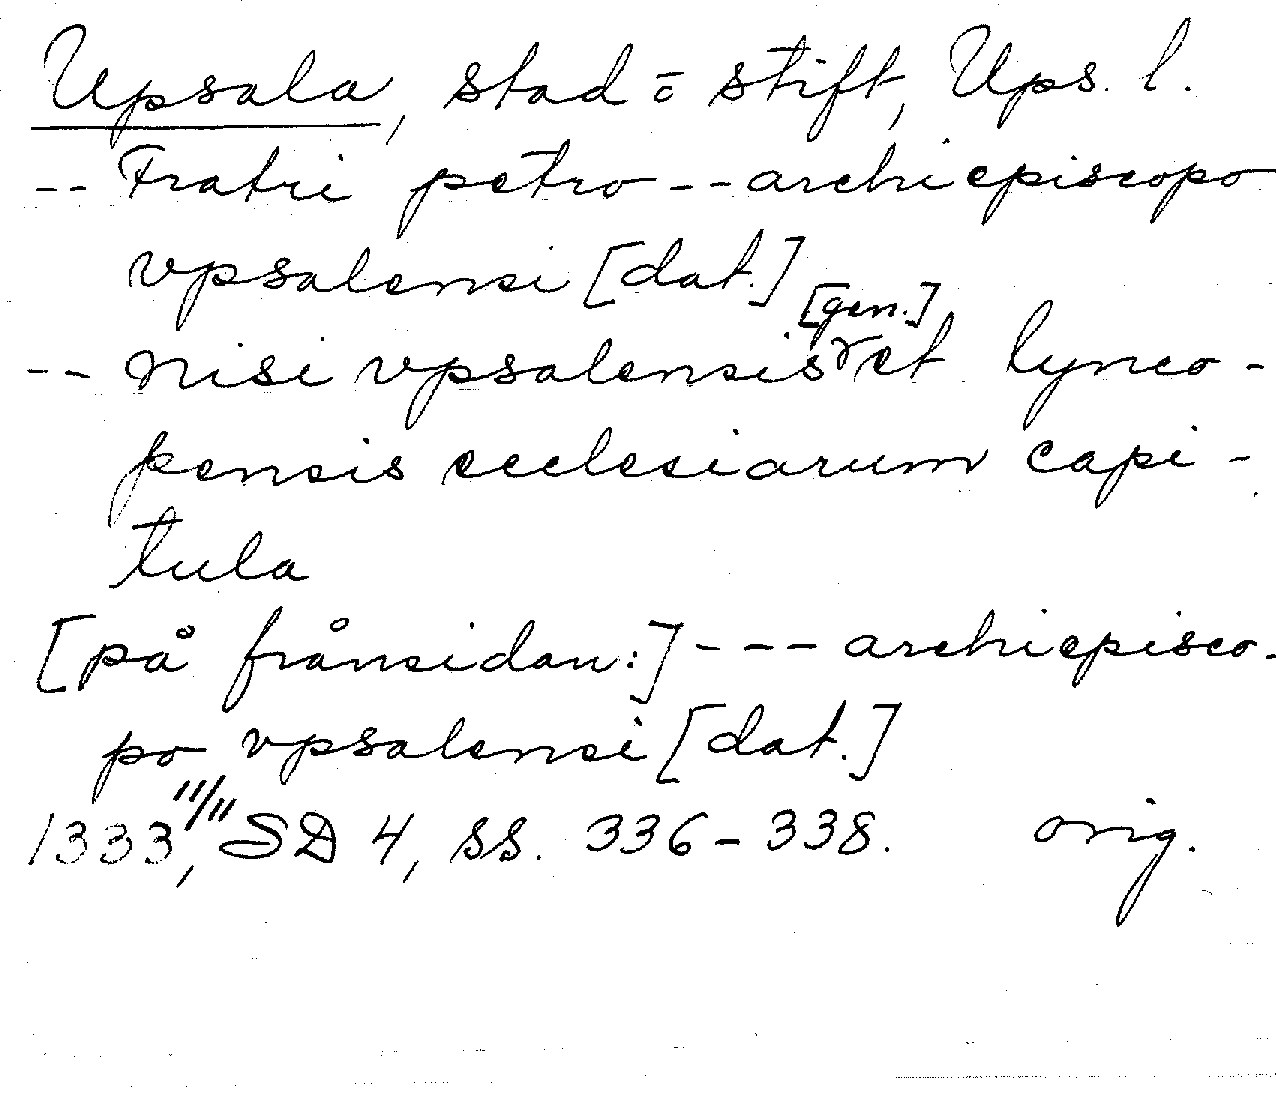 Upsala, stad = stift, Ups. l.
-- Fratri petro -- archiepiscopo
vpsalensi [dat.]
-- nisi vpsalensis [gen.] et lynco-
pensis ecclesiarum capi-
tula
[på frånsidan:] --- archiepisco-
po vpsalensi [dat.]
1333 11/11, SD 4, ss. 336-338. orig.